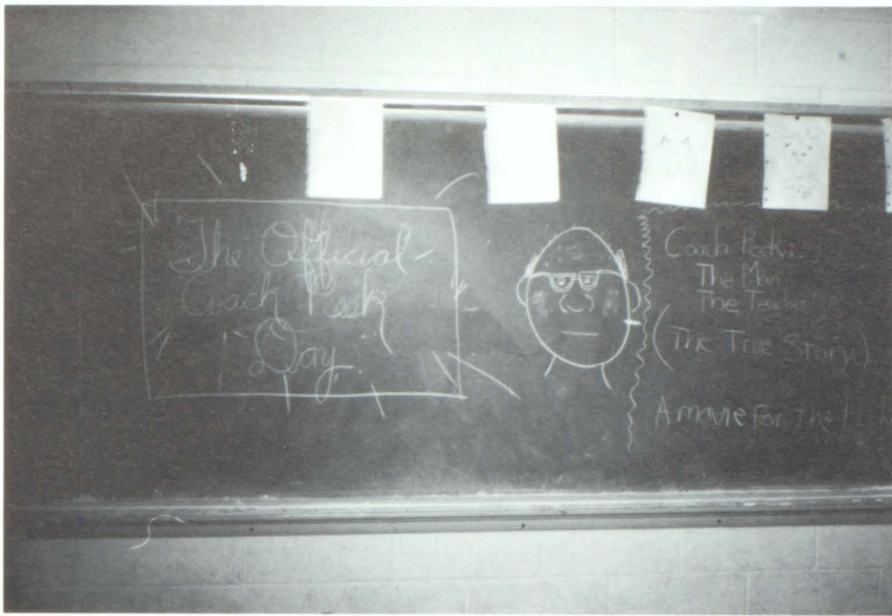 The Official
Coach Peek
Day
Coach Peek:
The Man
The Teacher
(The True Story)
A movie for the